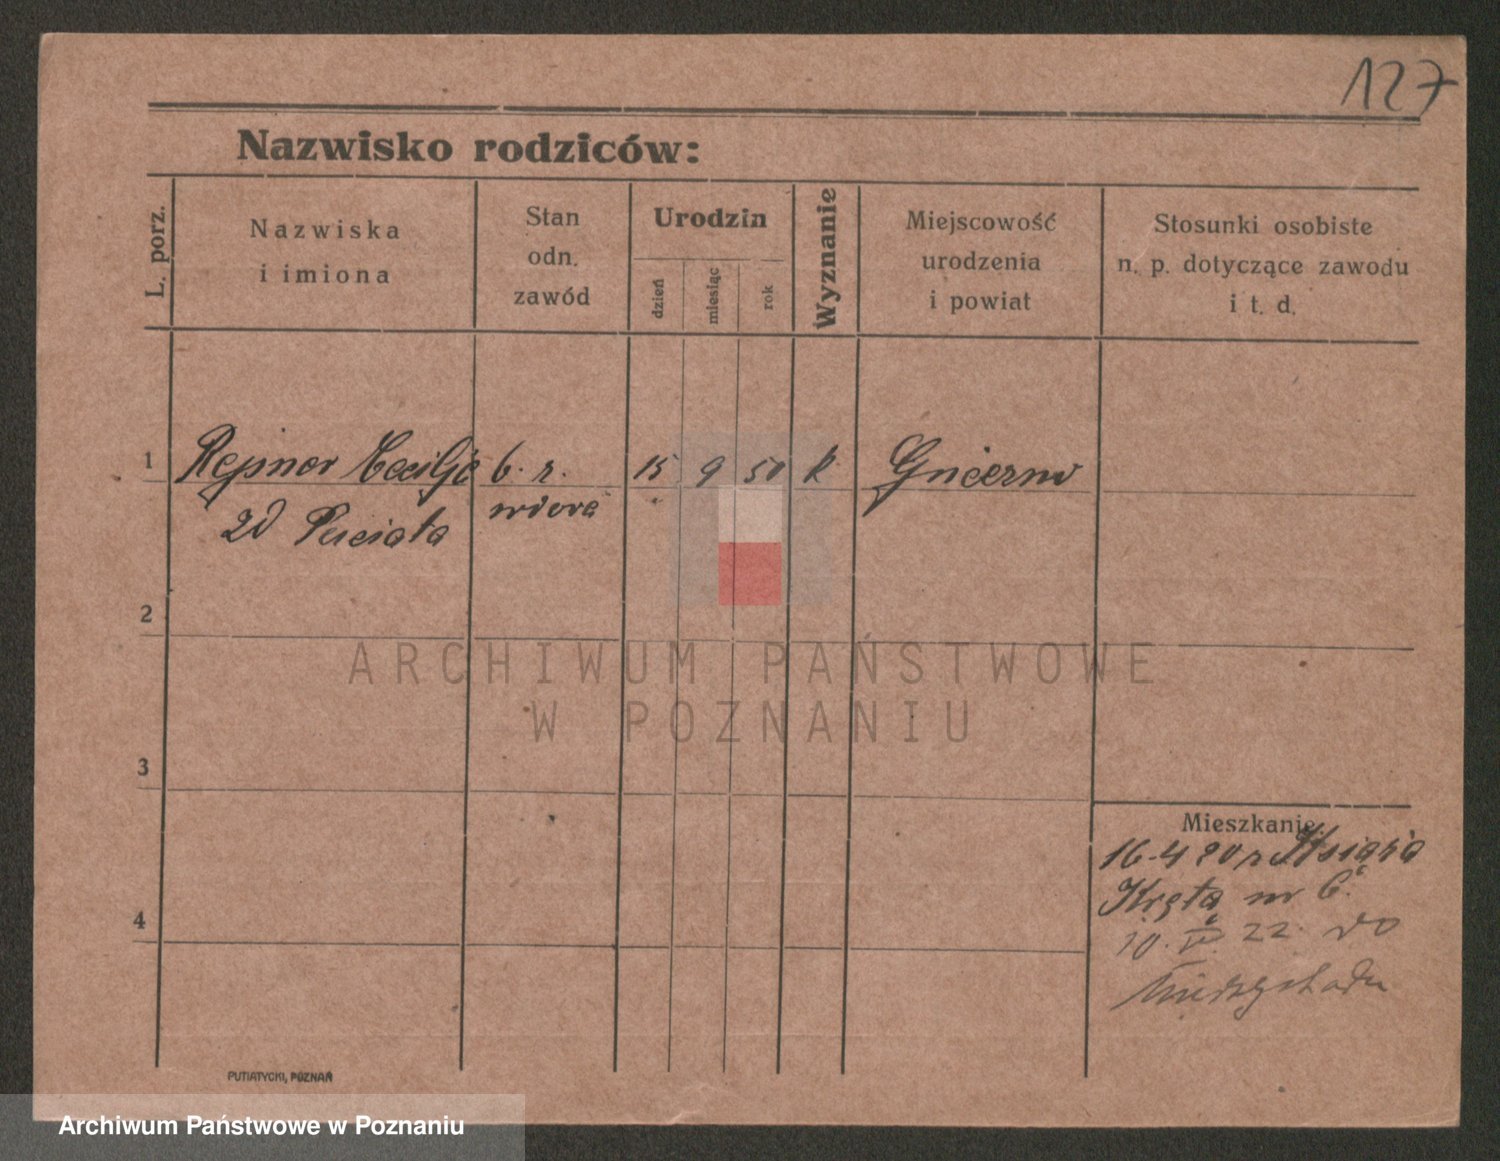 127
Nazwisko rodziców:
L. porz.
Nazwiska
i imiona
Stan
odn.
zawód
Urodzin
dzień
miesiąc
rok
Wyznanie
Miejscowość
urodzenia
i powiat
Stosunki osobiste
n. p. dotyczące zawodu
i t. d.
1
Rejner Cecilje
6. r.
15
9
50
k
zd Puciata
wdova
2
3
4
ARCHIWUM PAŃSTWOWE
W POZNANIU
Mieszkanie.
16-4 20 r
Kręta nr 6.
10. 22. do
Międzychodu
PUTIATYCKI, POZNAŃ
Archiwum Państwowe w Poznaniu